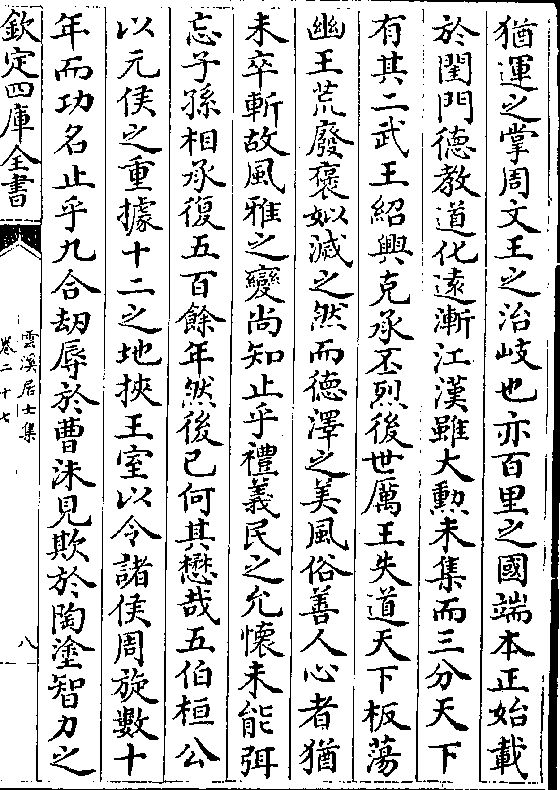 猶運之掌周文王之治岐也亦百里之國端本正始載
於閨門德教道化逺漸江漢雖大勲未集而三分天下
有其二武王紹興克承丕烈後世厲王失道天下板蕩
幽王荒廢褒姒滅之然而德澤之美風俗善人心者猶
未卒斬故風雅之變尚知止乎禮義民之允懐未能弭
忘子孫相承復五百餘年然後已何其懋哉五伯桓公
以元侯之重據十二之地挾王室以令諸侯周旋數十
年而功名止乎九合刼辱於曹沬見欺於陶塗智力之
欽定四庫全書
雲溪居士集
卷二十七
八